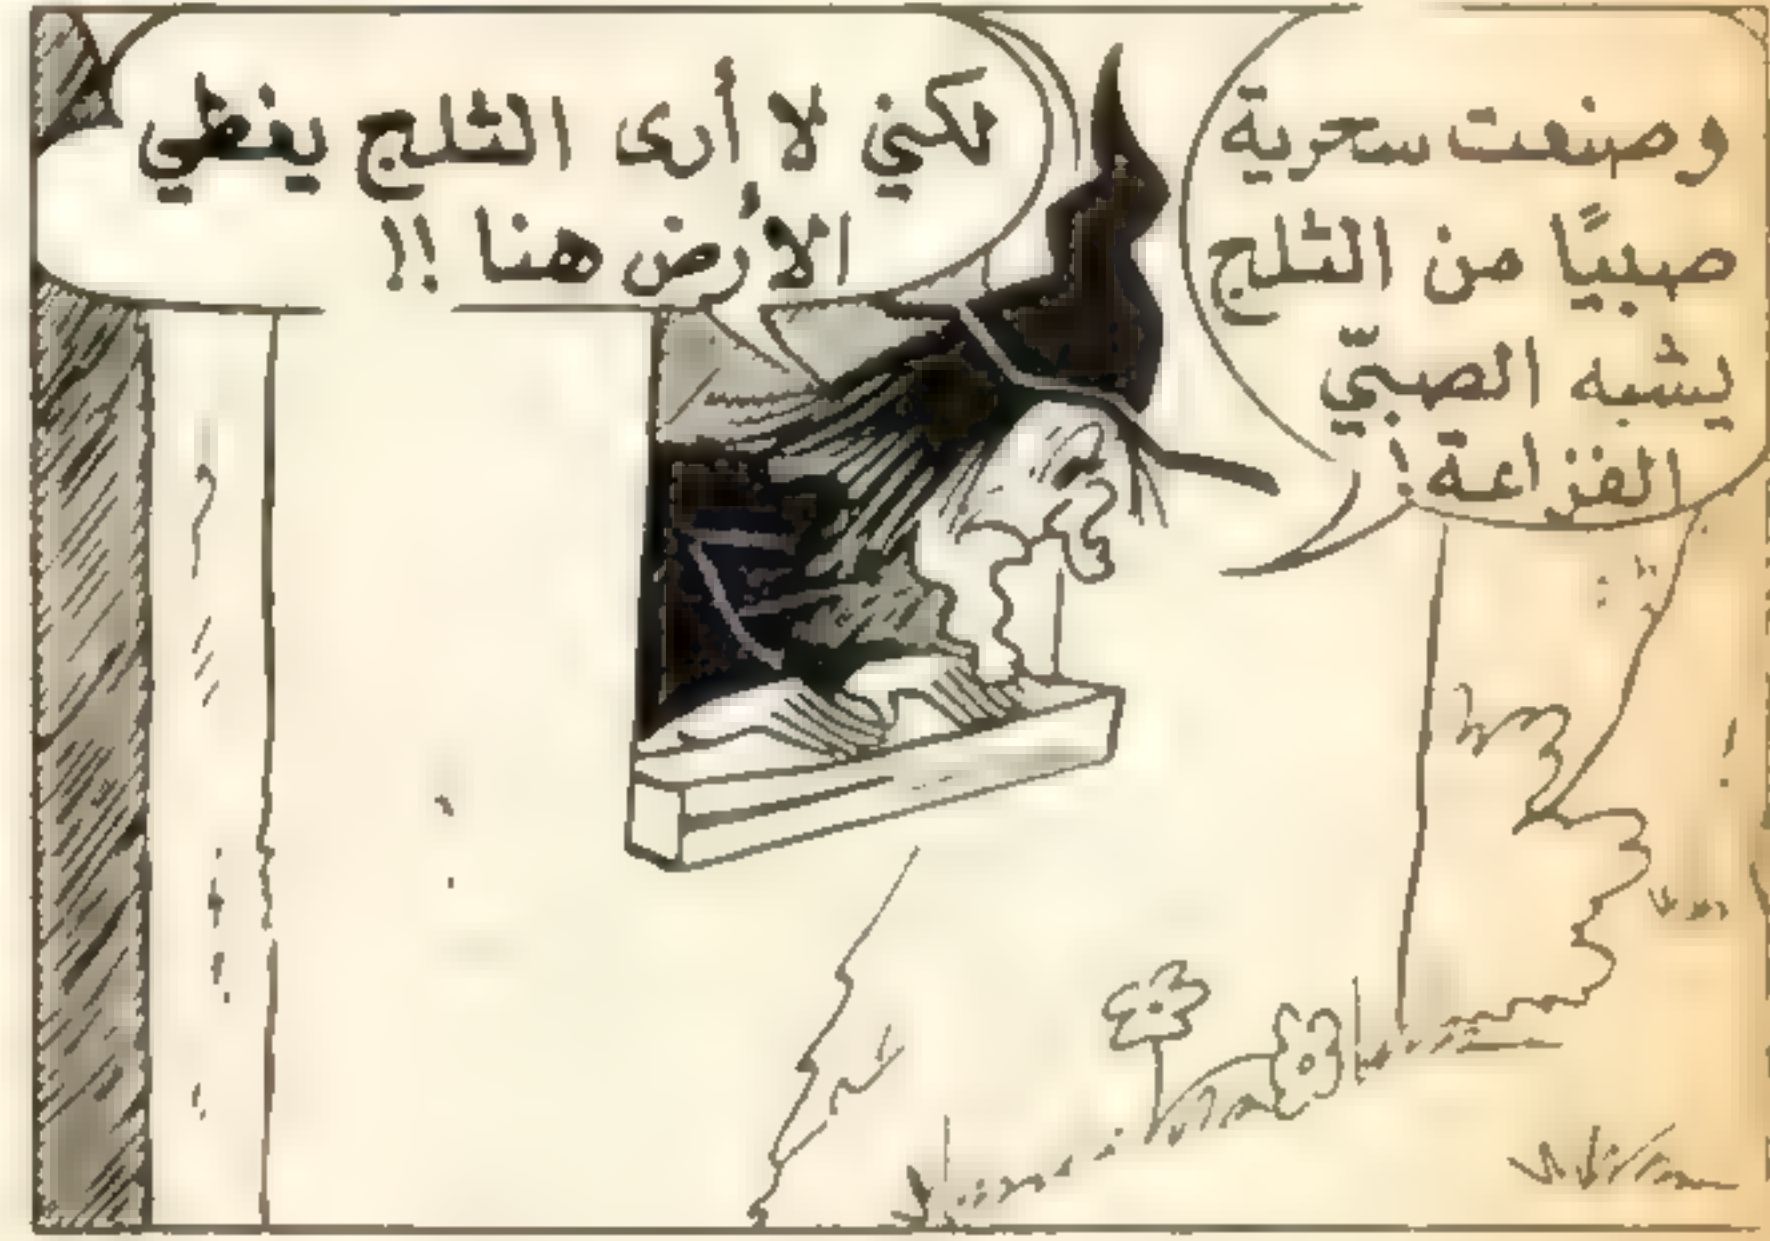 وصنعت سحرية
صبيًا من الثلج
يشبه الصبيّ
الفزاعة!
لكني لا أرى الثلج يغطي
الأرض هنا !!